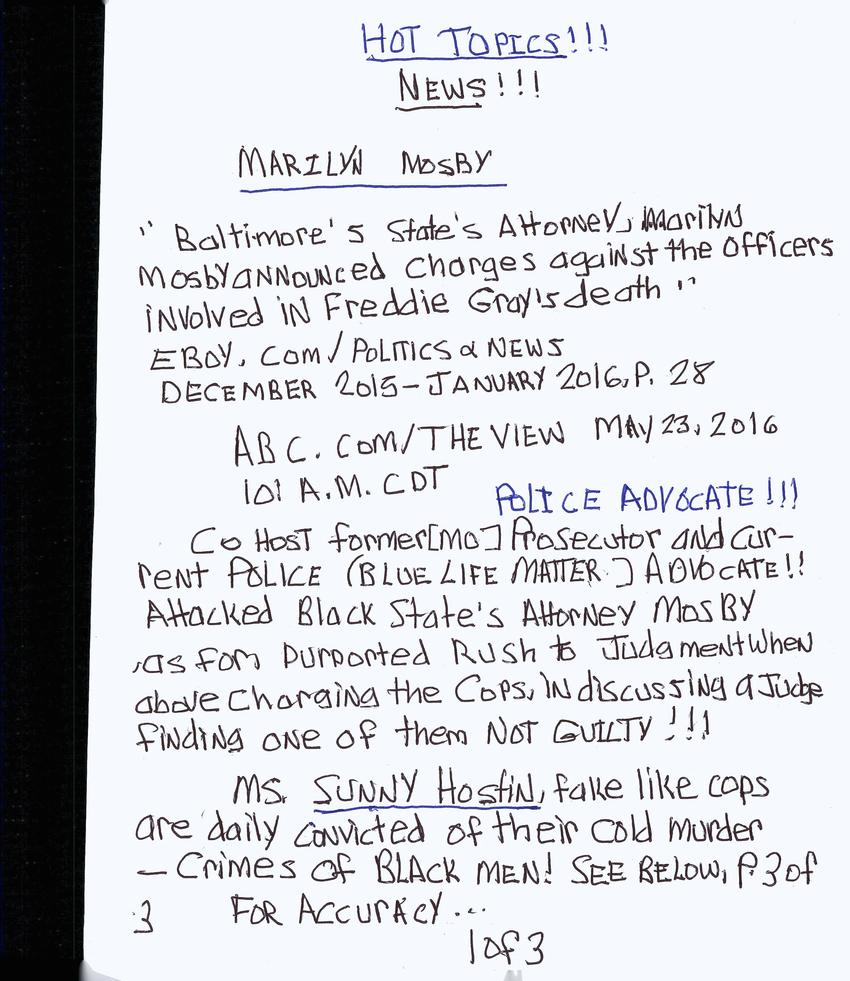 HOT TOPICS!!!
NEWS!!!
MARILYN MOSBY
" Baltimore's State's Attorney, Marilyn
Mosby announced charges against the officers
involved in Freddie Gray's death "
EBOY.COM/POLITICS & NEWS
DECEMBER 2015-JANUARY 2016, P. 28
ABC.COM/THE VIEW MAY 23, 2016
101 A.M. CDT
POLICE ADVOCATE!!!
CO HOST former[MO] Prosecutor and cur-
rent POLICE (BLUE LIFE MATTER] ADVOCATE!!
Attacked Black State's Attorney MOSBY
, as for purported Rush to Judgment when
above charging the Cops, in discussing a Judge
finding one of them NOT GUILTY!!!
MS. SUNNY Hostin, fake like cops
are daily convicted of their cold murder
- Crimes of BLACK MEN! SEE BELOW, P. 3 of
3 FOR ACCURACY...
1 of 3